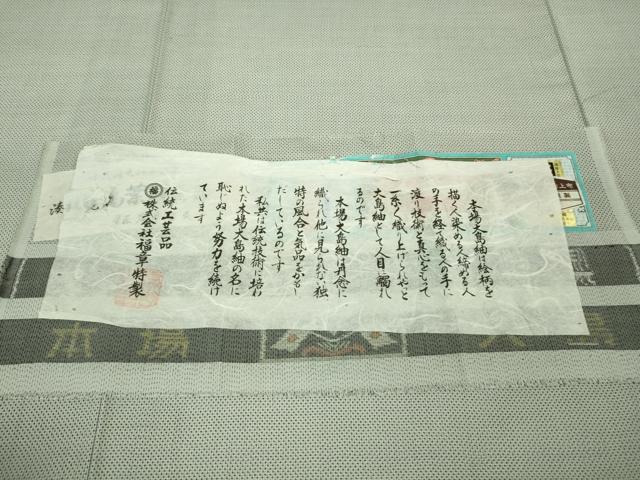 本場大島紬は絵柄を
描く人染める人絞める人
の手を経て織る人の手に
渡り技術と真心をもって
一糸く織り上げられやっと
大島紬として人目に觸れ
るのです
本場大島紬は丹念に
織られ他に見られない独
特の風合と気品をかもし
だしているのです
私共は伝統技術に培わ
れた本場大島紬の名に
恥じぬよう努力を続け
ています
伝統工芸品
福 株式会社福章特製
本場 大島